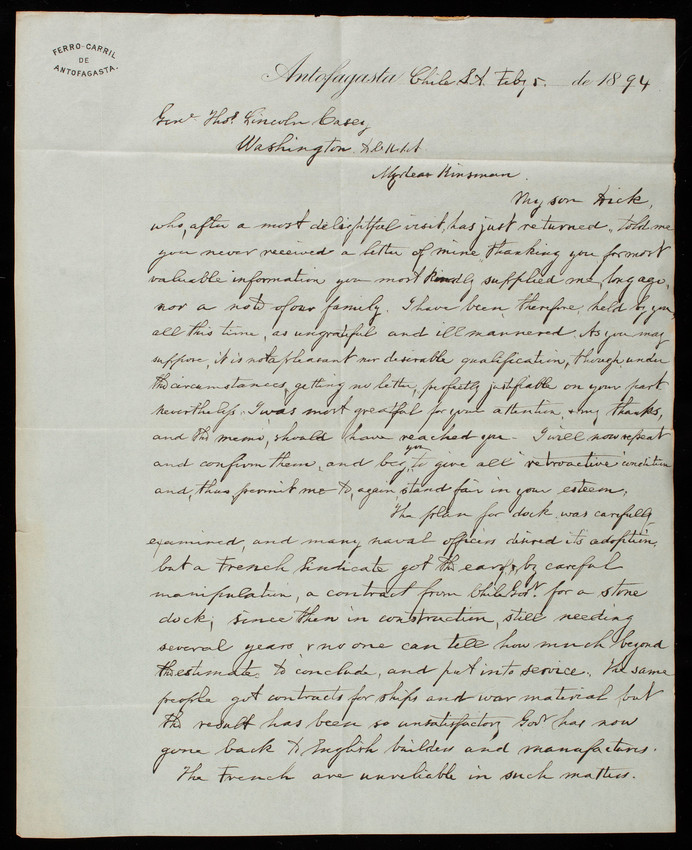 FERRO-CARRIL
DE
ANTOFAGASTA.
Antofagasta Chile S.A. Feby 5. de 1894
Genl Thos. Lincoln Casey
Washington
My dear Kinsman.
My son Dick,
who, after a most delightful visit, has just returned, told me
you never received a letter of mine, thanking you for most
valuable information you most kindly supplied me, long ago,
nor a note of our family. I have been therefore, held by you,
all this time, as ungrateful and ill mannered. As you may
suppose, it is not a pleasant nor desirable qualification, though, under
the circumstances, getting no letter, perfectly justifiable on your part
nevertheless I was most grateful for your attention, & my thanks,
and the memo, should have reached you - I will now repeat
and confirm them, and beg, you to give all "retroactive" condition
and, thus permit me to, again, stand fair in your esteem,
The plan for dock was carefully
examined, and many naval officers desired its adoption,
but a French Sindicate got the ear, & by careful
manipulation, a contract from Chile Govt. for a stone
dock, since then in construction, still needing
several years, & no one can tell how much beyond
the estimate, to conclude, and put into service. The same
people got contracts for ships and war material but
the result has been so unsatisfactory Govt has now
gone back to English builders and manufactures.
The French are unreliable in such matters.